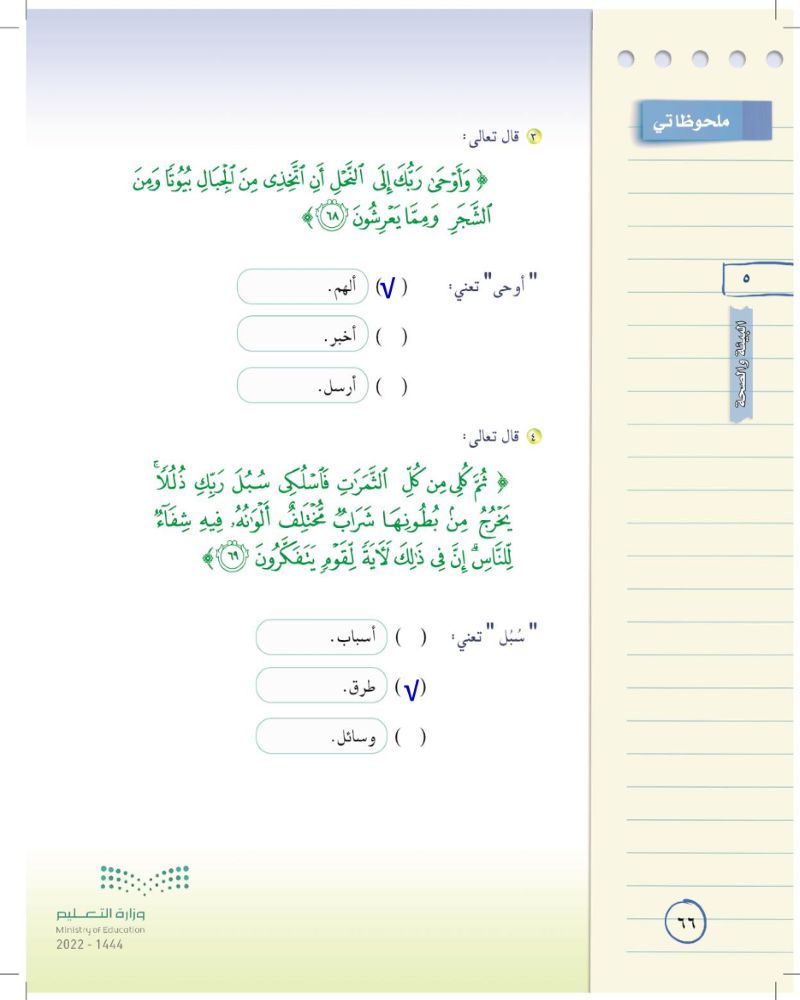 ملحوظاتي
٣ قال تعالى:
﴿ وَأَوْحَىٰ رَبُّكَ إِلَى النَّحْلِ أَنِ اتَّخِذِي مِنَ الْجِبَالِ بُيُوتًا وَمِنَ
الشَّجَرِ وَمِمَّا يَعْرِشُونَ ٦٨ ﴾
" أوحى" تعني: (√) ألهم.
( ) أخبر.
( ) أرسل.
٤ قال تعالى:
﴿ ثُمَّ كُلِي مِن كُلِّ الثَّمَرَٰتِ فَاسْلُكِي سُبُلَ رَبِّكِ ذُلُلًا ۚ
يَخْرُجُ مِنۢ بُطُونِهَا شَرَابٌ مُّخْتَلِفٌ أَلْوَٰنُهُۥ فِيهِ شِفَآءٌ
لِّلنَّاسِ ۗ إِنَّ فِي ذَٰلِكَ لَآيَةً لِّقَوْمٍ يَتَفَكَّرُونَ ٦٩ ﴾
" سُبُل " تعني: ( ) أسباب.
(√) طرق.
( ) وسائل.
٥
البيئة والصحة
وزارة التعـــليم
Ministry of Education
2022 - 1444
٦٦